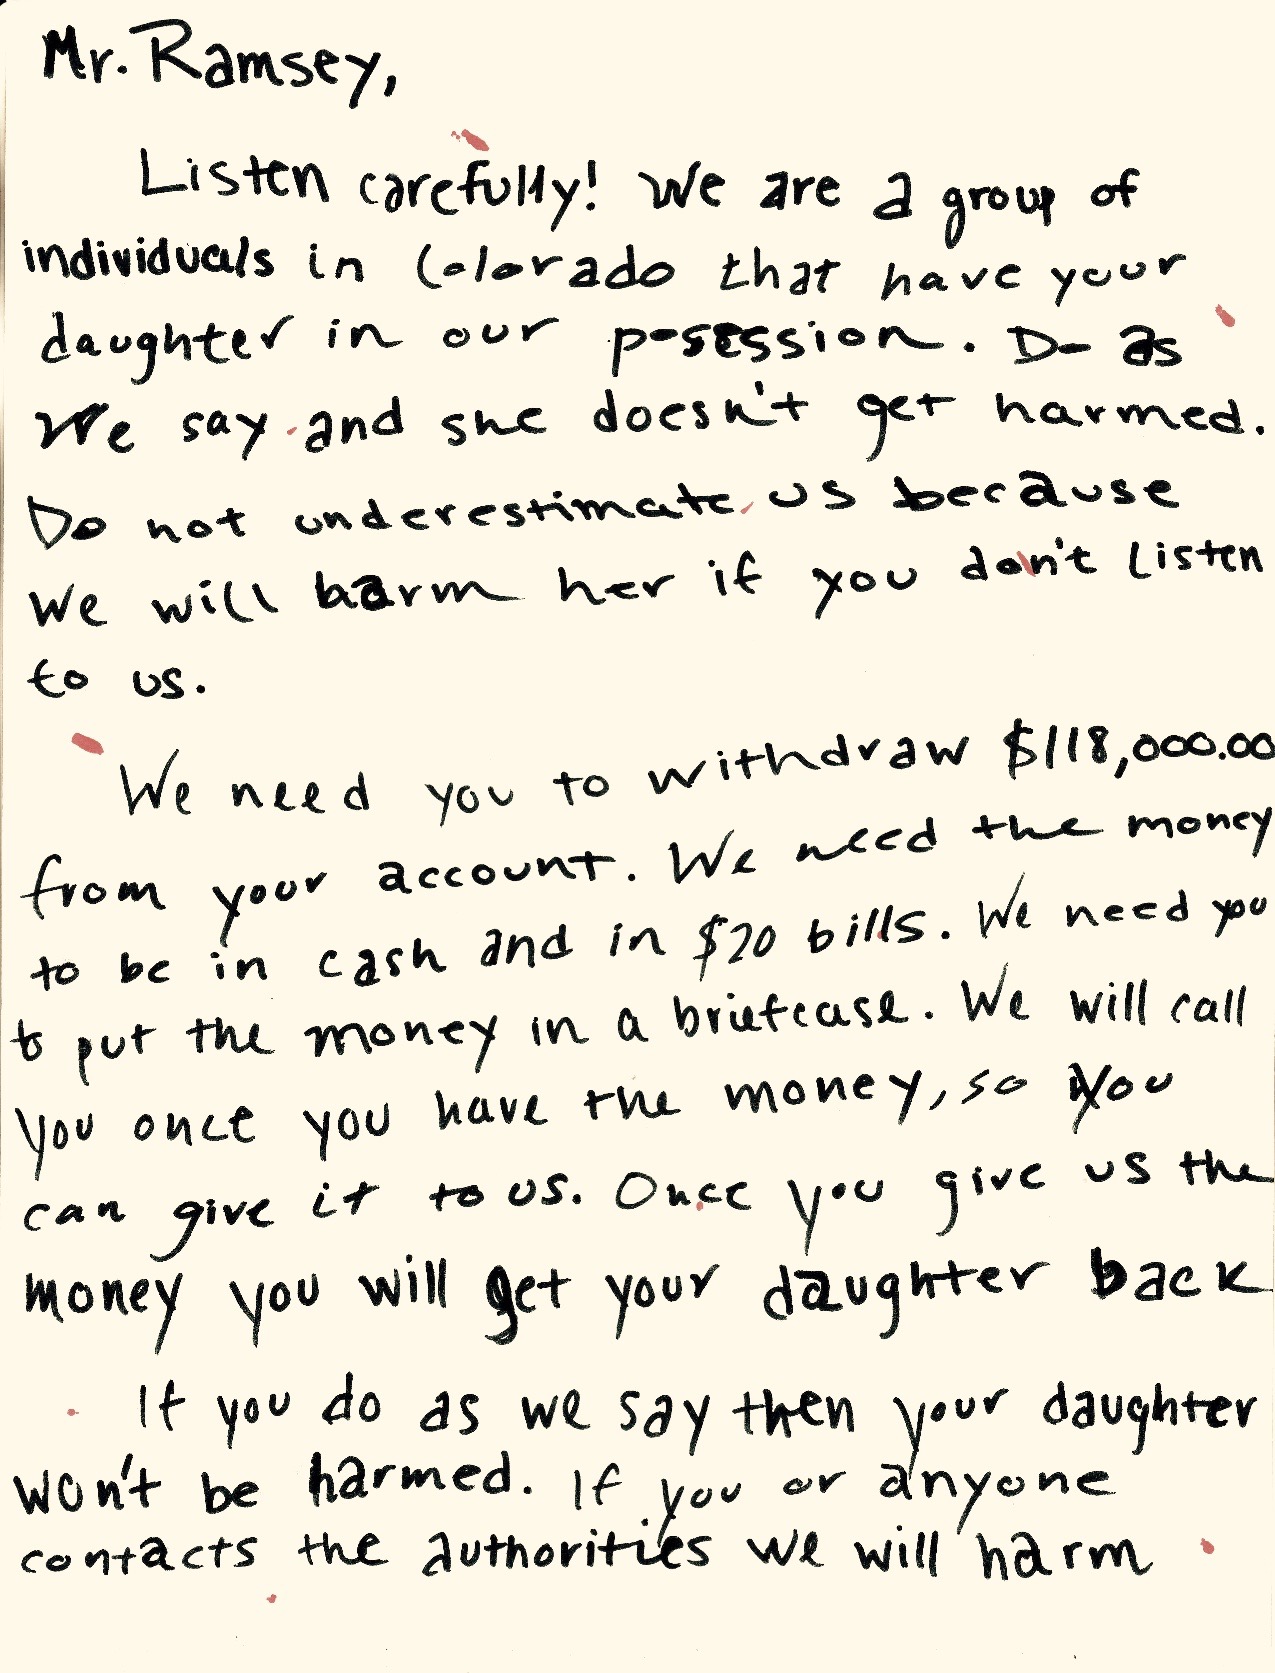 Mr. Ramsey,
Listen carefully! We are a group of
individuals in Colorado that have your
daughter in our posession. Do as
We say and she doesn't get harmed.
Do not underestimate us because
We will harm her if you don't listen
to us.
We need you to withdraw $118,000.00
from your account. We need the money
to be in cash and in $20 bills. We need you
to put the money in a briefcase. We will call
you once you have the money, so you
can give it to us. Once you give us the
money you will get your daughter back
If you do as we say then your daughter
won't be harmed. If you or anyone
contacts the authorities we will harm